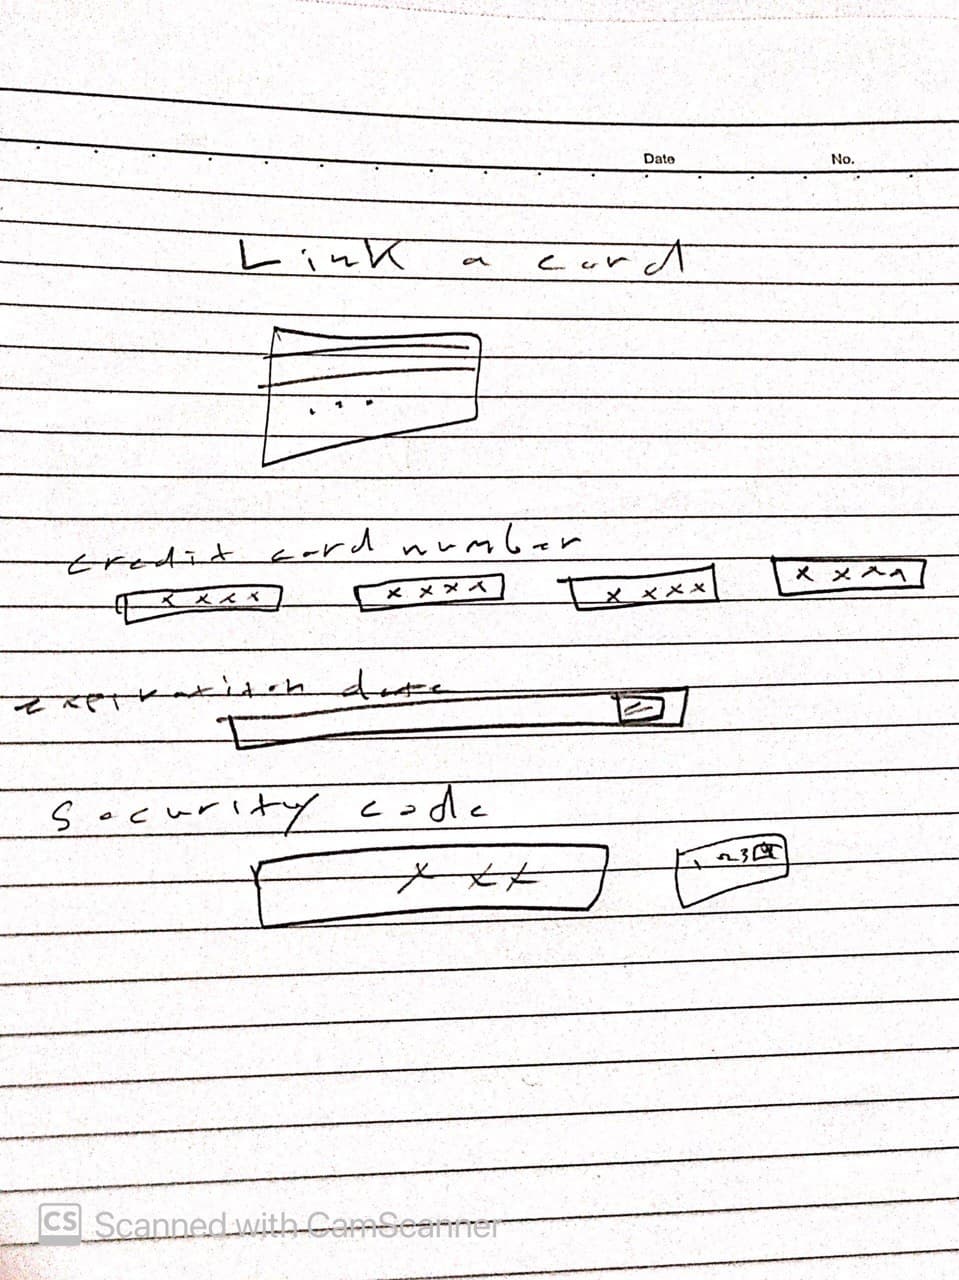 Date No.
Link a card
...
credit card number
xxxx xxxx xxxx xxxx
expiration date
Security code
xxx
CS Scanned with CamScanner